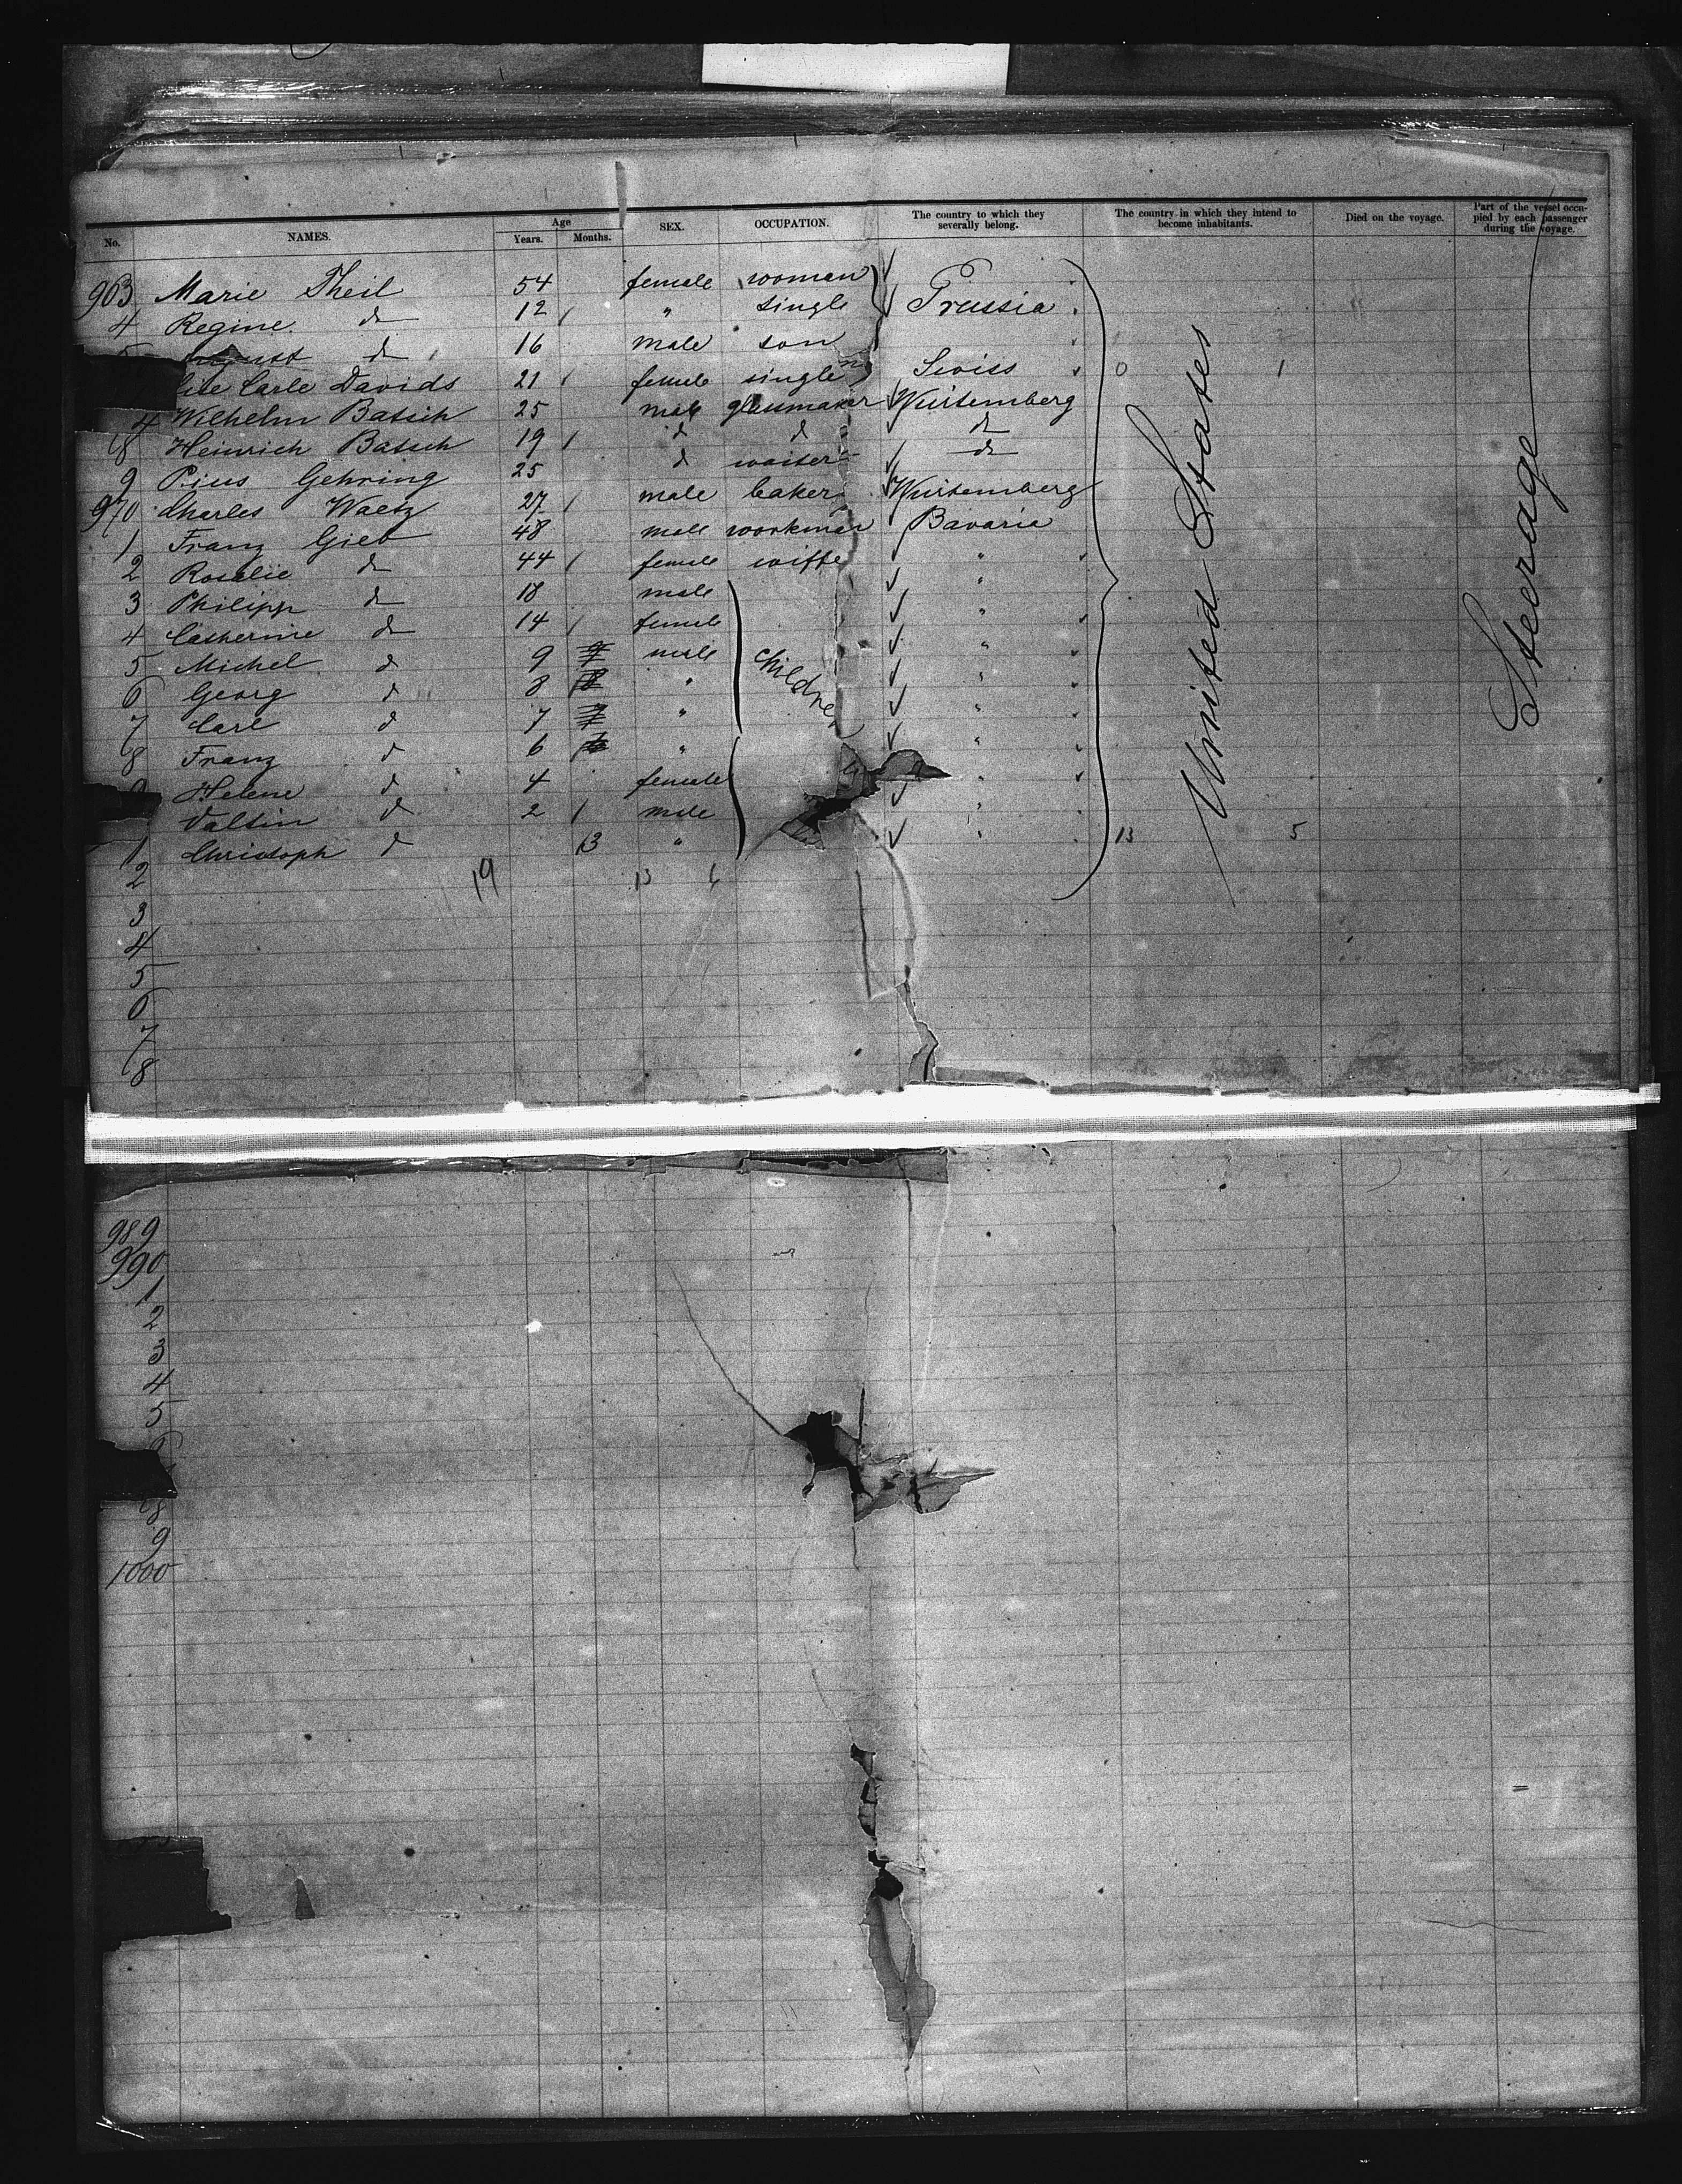 No. NAMES. Age Years. Months. SEX. OCCUPATION. The country to which they severally belong. The country in which they intend to become inhabitants. Died on the voyage. Part of the vessel occupied by each passenger during the voyage.
963 Marie Theil 54 female woman Prussia
4 Regine do 12 " single
do 16 male son
Carle Davids 21 female single Swiss 0 1
Wilhelm Batsch 25 male glassmaker Würtemberg
8 Heinrich Batsch 19 d d do
9 Pius Gehring 25 d waiter do
970 Charles Waetz 27 male baker Würtemberg
1 Franz Gieb 48 male workman Bavaria
2 Rosalie do 44 female wiffe "
3 Philipp do 18 male "
4 Catherine do 14 female "
5 Michel d 9 male children "
6 Georg d 8 " "
7 Carl d 7 " "
8 Franz d 6 " "
Helene d 4 female "
Valtin d 2 male "
1 Christoph d 13 " " 13 5
United States
Steerage
2 19 13 6
3
4
5
6
7
8
989
990
1
2
3
4
5
8
9
1000